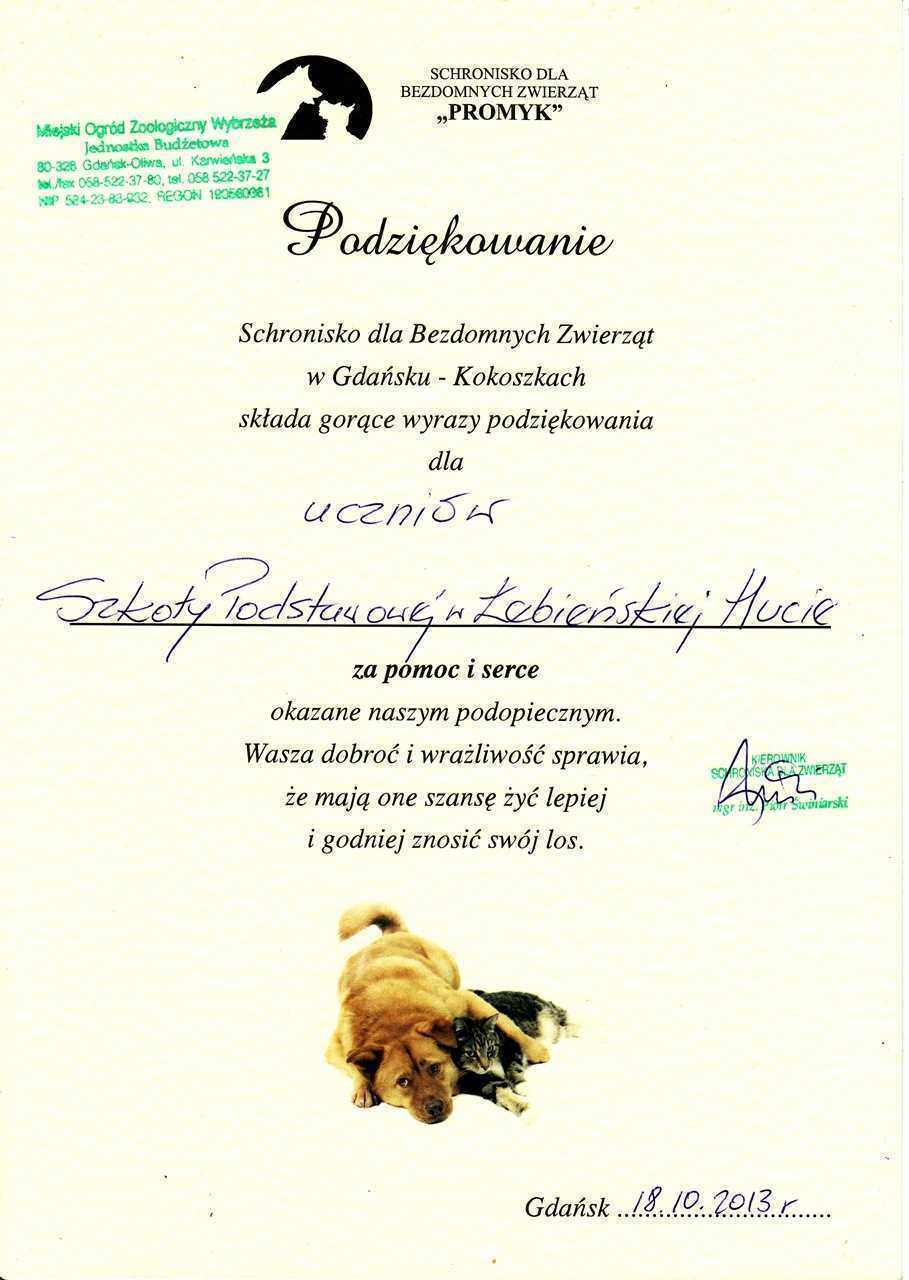 SCHRONISKO DLA
BEZDOMNYCH ZWIERZĄT
„PROMYK”
Miejski Ogród Zoologiczny Wybrzeża
Jednostka Budżetowa
80-328 Gdańsk-Oliwa, ul. Karwieńska 3
tel./fax 058-522-37-80, tel. 058 522-37-27
NIP 584-23-83-932, REGON
Podziękowanie
Schronisko dla Bezdomnych Zwierząt
w Gdańsku - Kokoszkach
składa gorące wyrazy podziękowania
dla
uczniów
Szkoły Podstawowej w Łebieńskiej Hucie
za pomoc i serce
okazane naszym podopiecznym.
Wasza dobroć i wrażliwość sprawia,
że mają one szansę żyć lepiej
i godniej znosić swój los.
KIEROWNIK
SCHRONISKA DLA ZWIERZĄT
mgr inż. Piotr Świniarski
Gdańsk 18.10.2013 r